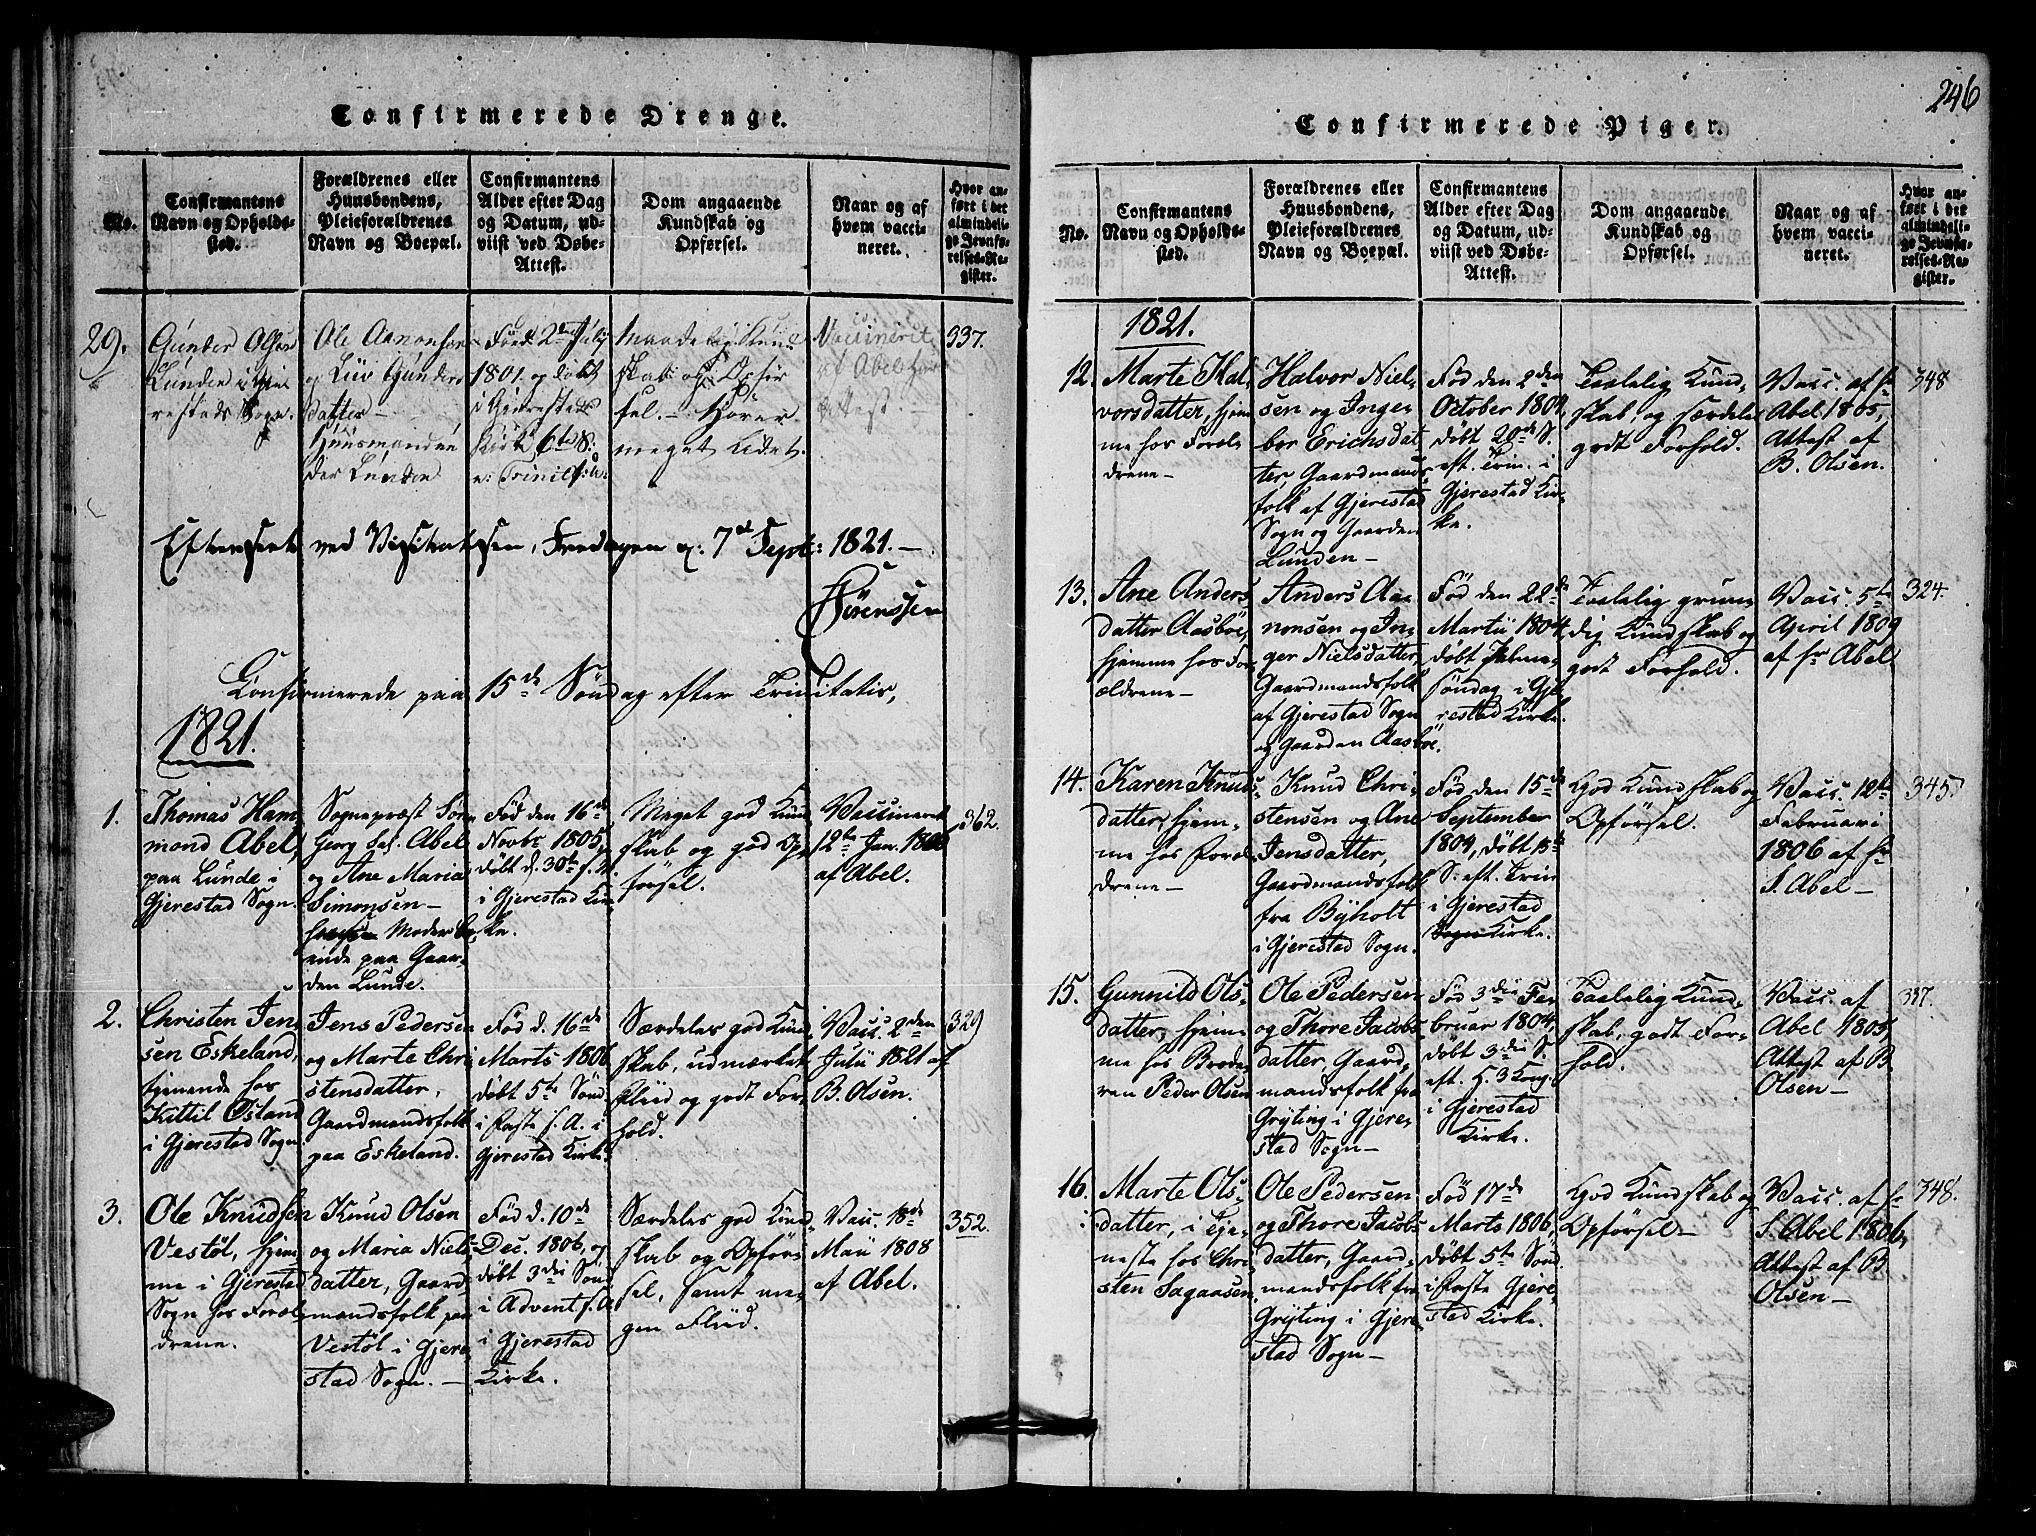 246
Confirmerede Drenge.
No.
Confirmantens
Navn og Opholds-
sted.
Forældrenes eller
Huusbondens,
Pleieforældrenes
Navn og Boepæl.
Confirmantens
Alder efter Dag
og Datum, ud-
viist ved Døbe-
Attest.
Dom angaaende
Kundskab og
Opførsel.
Naar og af
hvem vacci-
neret.
Hvor an-
ført i det
almindeli-
ge Jevnfø-
relses-Re-
gister.
29.
Gunder Olsen
Lunden i Gie-
restads Sogn.
Ole Aanonsen
og Liv Gunders
datter
Huusmand
Lunden
Fød 2den July
1801. og døbt
i Gierestad
Kirke 6te S.
e: Trinit:
Maadelig Kund-
skab og Opfør
sel. - Hører
meget lidet.
Vaccineret
af Abel
Attest.
337.
Efterseet ved Visitatsen, Fredagen d: 7de Septr: 1821. -
Sørenssen
Confirmerede paa 15de Søndag efter Trinitatis,
1821.
1.
Thomas Ham-
mond Abel,
paa Lunde i
Gjerestad Sogn.
Sognepræst
Abel
og Ane Maria
Simonsen -
Moder bo-
ende paa Gaar-
den Lunde.
Fød den 16de
Novbr 1805,
døbt d. 30te s. M.
i Gjerestad Kir-
ke.
Meget god Kund-
skab og god Op-
førsel.
Vaccineret
12te Jan. 1806
af Abel.
362.
2.
Christen Jen-
sen Eskeland,
tjenende hos
Kittil Østland
i Gjerestad Sogn
Jens Pedersen
og Marte Chri-
stensdatter,
Gaardmandsfolk
paa Eskeland.
Fød d. 16de
Marts 1806
døbt 5te Sønd.
i Faste s. A. i
Gjerestad Kirke.
Særdeles god Kund-
skab, udmærket
Fliid og godt For-
hold.
Vacc. 2den
Julii 1821 af
B. Olsen.
329
3.
Ole Knudsen
Vestøl, hjem-
me i Gjerestad
Sogn hos Foræl-
drene.
Knud Olsen
og Maria Niels-
datter, Gaard-
mandsfolk paa
Vestøl i Gjere-
stad Sogn. -
Fød d. 10de
Dec. 1806, og
døbt 3die Sønd.
i Advent s. A.
i Gjerestad
Kirke.
Særdeles god Kund-
skab og Opfør-
sel, samt me-
gen Fliid.
Vacc. 18de
Maii 1808
af Abel.
352.
Confirmerede Piger.
No.
Confirmantens
Navn og Opholds-
sted.
Forældrenes eller
Huusbondens,
Pleieforældrenes
Navn og Boepæl.
Confirmantens
Alder efter Dag
og Datum, ud-
viist ved Døbe-
Attest.
Dom angaaende
Kundskab og
Opførsel.
Naar og af
hvem vacci-
neret.
Hvor an-
ført i det
almindeli-
ge Jevnfø-
relses-Re-
gister.
1821.
12.
Marte Hal-
vorsdatter, hjem-
me hos Foræl-
drene -
Halvor Niel-
sen og Inge-
bor Erichsdat-
ter, Gaardmands-
folk af Gjerestad
Sogn og Gaarden
Lunden -
Fød den 2den
October 1804,
døbt 20de S.
eft. Trin. i
Gjerestad Kir-
ke.
Taalelig Kund-
skab, og særdeles
godt Forhold.
Vacc. af Hr
Abel 1805,
Attest af
B. Olsen.
348
13.
Ane Anders-
datter Aasböe,
hjemme hos For-
ældrene -
Anders Aa-
nonsen og In-
ger Nielsdatter,
Gaardmandsfolk
af Gjerestad Sogn
og Gaarden Aasböe.
Fød den 22de
Martii 1804,
døbt Palme-
søndag i Gje-
restad Kirke.
Taalelig grun-
dig Kundskab og
godt Forhold.
Vacc. 5te
April 1809
af Hr Abel
324.
14.
Karen Knuds-
datter, hjem-
me hos Foræl-
drene -
Knud Chri-
stensen og Ane
Jensdatter,
Gaardmandsfolk
fra Byholt
i Gjerestad Sogn.
Fød den 15de
September
1804, døbt 18de
S. eft. Trin
i Gjerestad
Sogn Kirke.
God Kundskab og
Opførsel.
Vacc. 12te
Februari
1806 af Hr
S. Abel -
345.
15.
Gunnild Ols-
datter, hjem-
me hos Brode-
ren Peder Olsen
Ole Pedersen
og Thore Jacobs-
datter, Gaard-
mandsfolk fra
Gryting i Gjere-
stad Sogn -
Fød 3die Fe-
bruar 1804,
døbt 3die S.
eft. H. 3 Kong.
i Gjerestad
Kirke.
Taalelig Kund-
skab, godt For-
hold.
Vacc. af
Abel 1805,
Attest af B.
Olsen -
337.
16.
Marte Ols-
datter, i Tje-
neste hos Chri-
sten Sagaasen
Ole Pedersen
og Thore Jacobs-
datter, Gaard-
mandsfolk fra
Gryting i Gjere-
stad Sogn -
Fød 17de
Marts 1806,
døbt 5te Sønd.
i Faste Gjere-
stad Kirke.
God Kundskab og
Opførsel -
Vacc. af Hr
S. Abel 1806,
Attest af B
Olsen -
348.